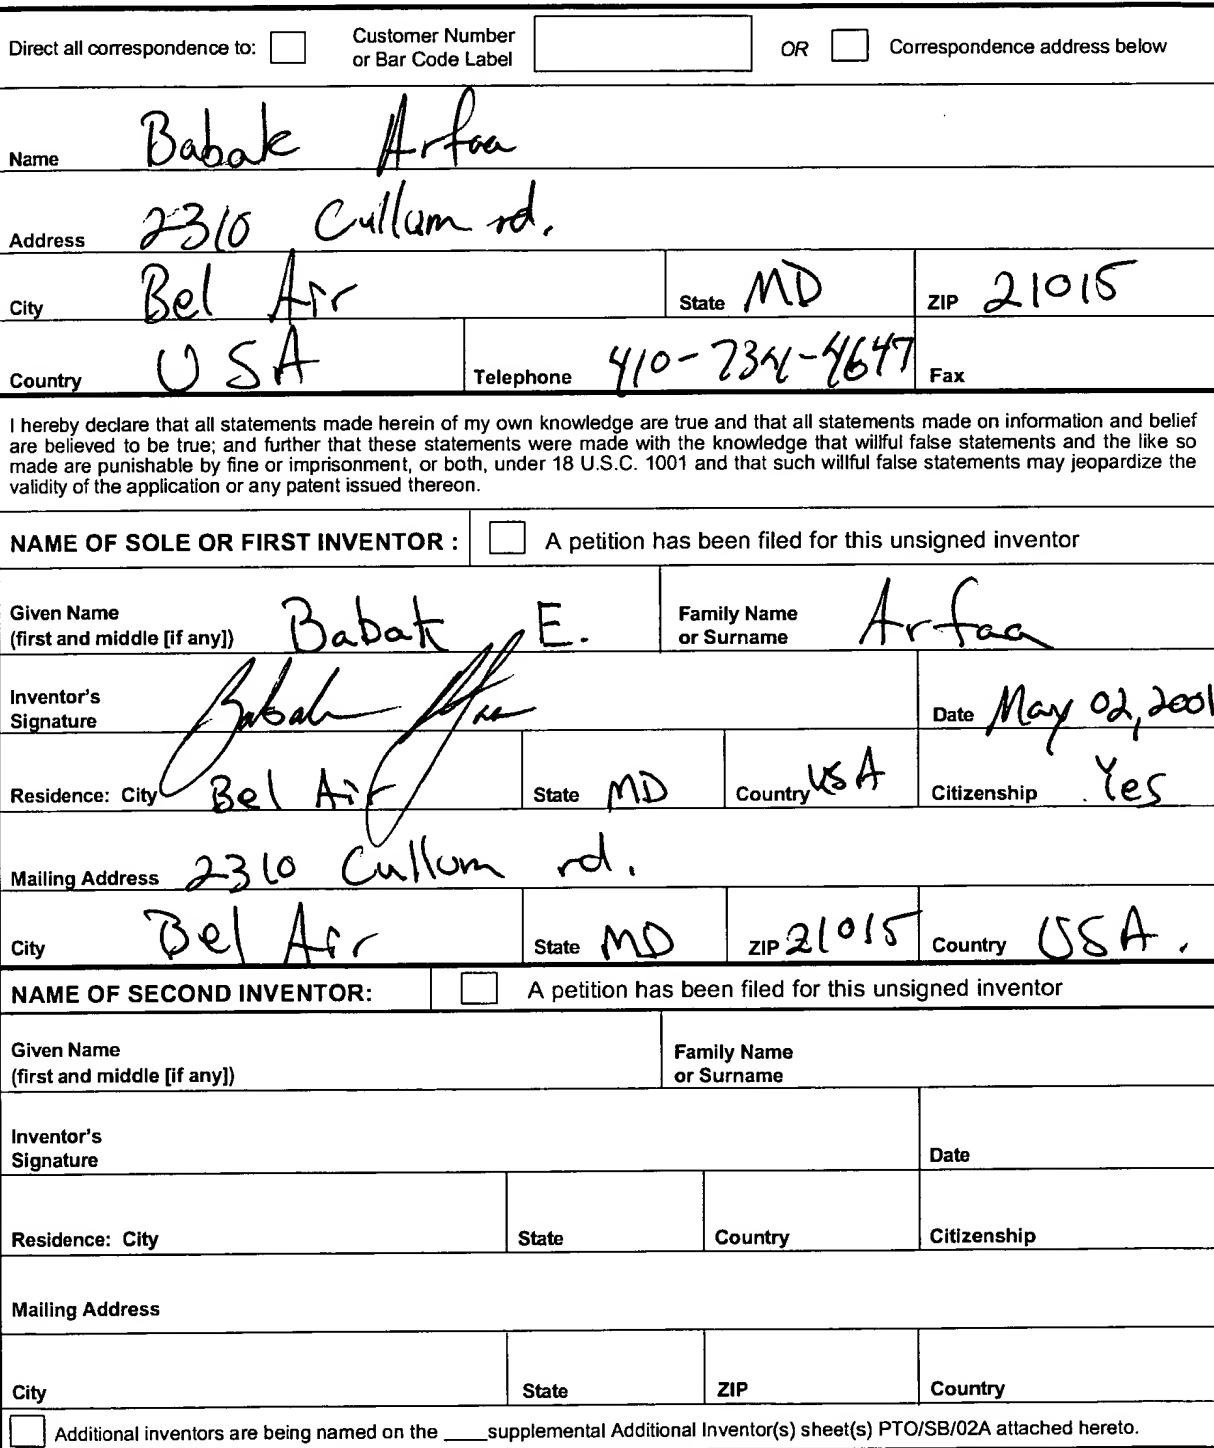 Direct all correspondence to: Customer Number or Bar Code Label OR Correspondence address below
Name Babak Arfaa
Address 2310 Cullum rd.
City Bel Air State MD ZIP 21015
Country USA Telephone 410-734-4647 Fax
I hereby declare that all statements made herein of my own knowledge are true and that all statements made on information and belief
are believed to be true; and further that these statements were made with the knowledge that willful false statements and the like so
made are punishable by fine or imprisonment, or both, under 18 U.S.C. 1001 and that such willful false statements may jeopardize the
validity of the application or any patent issued thereon.
NAME OF SOLE OR FIRST INVENTOR : A petition has been filed for this unsigned inventor
Given Name (first and middle [if any]) Babak E. Family Name or Surname Arfaa
Inventor's Signature Babak Arfaa Date May 02, 2001
Residence: City Bel Air State MD Country USA Citizenship Yes
Mailing Address 2310 Cullum rd.
City Bel Air State MD ZIP 21015 Country USA.
NAME OF SECOND INVENTOR: A petition has been filed for this unsigned inventor
Given Name (first and middle [if any]) Family Name or Surname
Inventor's Signature Date
Residence: City State Country Citizenship
Mailing Address
City State ZIP Country
Additional inventors are being named on the ____supplemental Additional Inventor(s) sheet(s) PTO/SB/02A attached hereto.